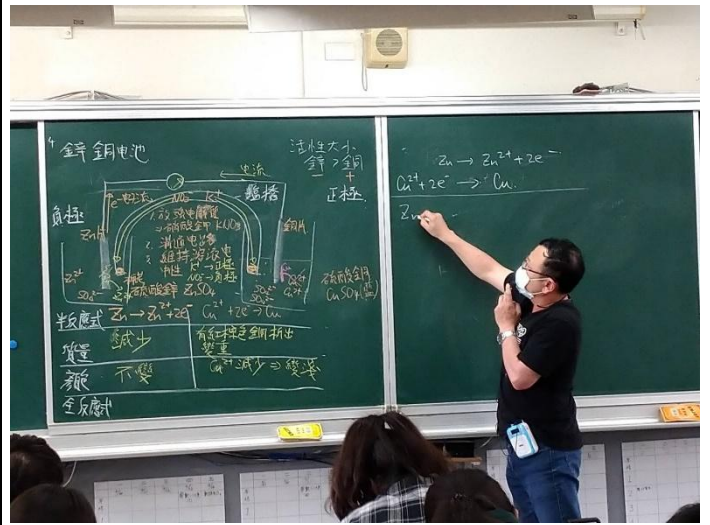 鋅銅电池
活性大小
鋅 > 銅
- +
正極
电流
鹽橋
負極
e⁻电流
NO₃⁻ K⁺
1. 放強电解質
⇒硝酸鉀 KNO₃
2. 溝通电路
3. 維持溶液电
中性 K⁺→正極
NO₃⁻→負極
Zn片
銅片
Zn²⁺
SO₄²⁻
硫酸鋅 ZnSO₄
Cu²⁺
SO₄²⁻
SO₄²⁻
硫酸銅
CuSO₄(藍)
半反應式 Zn→Zn²⁺+2e⁻ Cu²⁺+2e⁻→Cu
質量 減少 有紅棕色銅析出
變重
顏色 不變 Cu²⁺減少⇒變淺
全反應式
Zn → Zn²⁺+2e⁻
Cu²⁺+2e⁻ → Cu
Zn